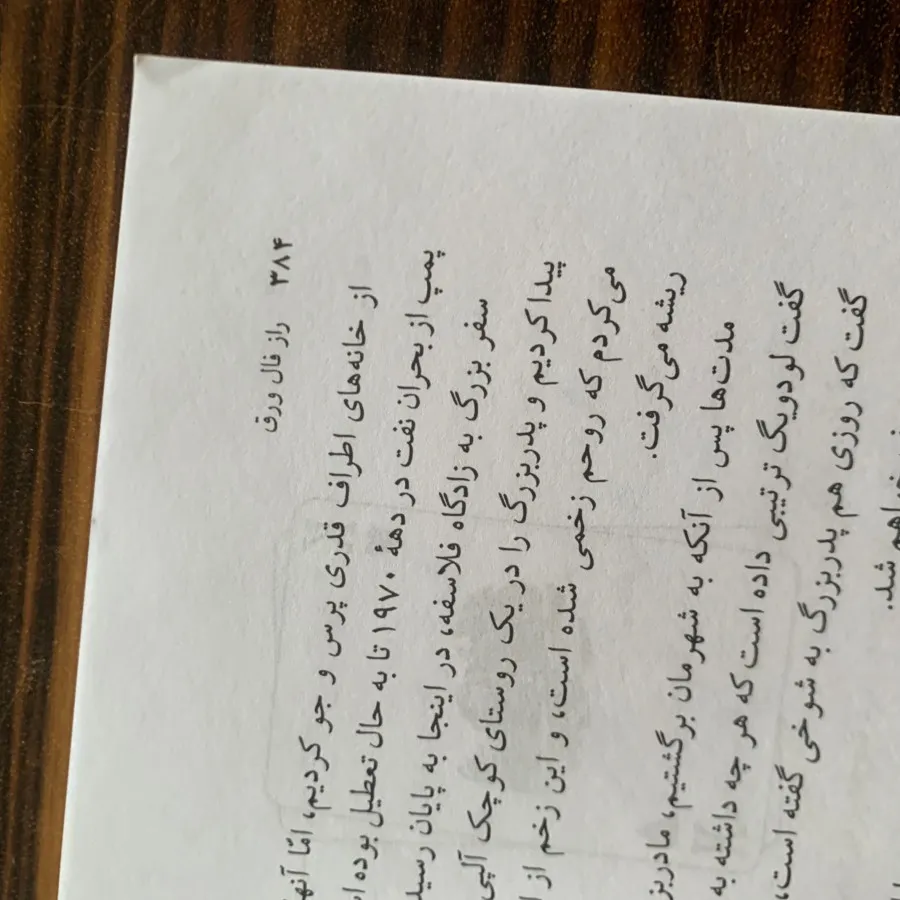 ۳۸۴ راز فال ورق
از خانه‌های اطراف قدری پرس و جو کردیم، امّا آنها
پمپ از بحران نفت در دههٔ ۱۹۷۰ تا به حال تعطیل بوده
سفر بزرگ به زادگاه فلاسفه، در اینجا به پایان رسید
پیدا کردیم و پدربزرگ را در یک روستای کوچک آلپی
می‌کردم که روحم زخمی شده است، و این زخم از
ریشه می‌گرفت.
مدت‌ها پس از آنکه به شهرمان برگشتیم،
گفت لودویگ ترتیبی داده است که هر چه داشته به
گفت که روزی هم پدربزرگ به شوخی گفته است،
خواهم شد.